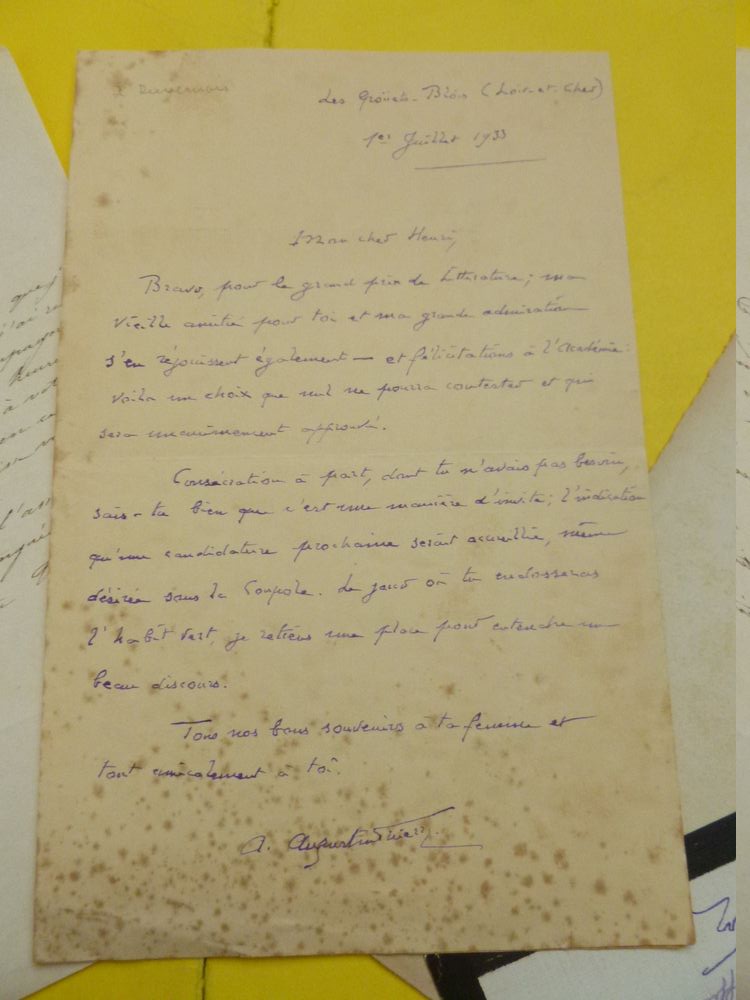 H. Duvernois
Les Groüets-Blois (Loir-et-Cher)
1er Juillet 1933
Mon cher Henri,
Bravo, pour le grand prix de littérature ; ma
vieille amitié pour toi et ma grande admiration
s'en réjouissent également — et félicitations à l'Académie :
voilà un choix que nul ne pourra contester et qui
sera unanimement approuvé.
Consécration à part, dont tu n'avais pas besoin,
sais-tu bien que c'est une manière d'invite ; l'indication
qu'une candidature prochaine serait accueillie, même
désirée sous la Coupole. Le jour où tu endosseras
l'habit vert, je retiens une place pour entendre un
beau discours.
Tous nos bons souvenirs à ta femme et
tout amicalement à toi.
A. Augustin-Thierry